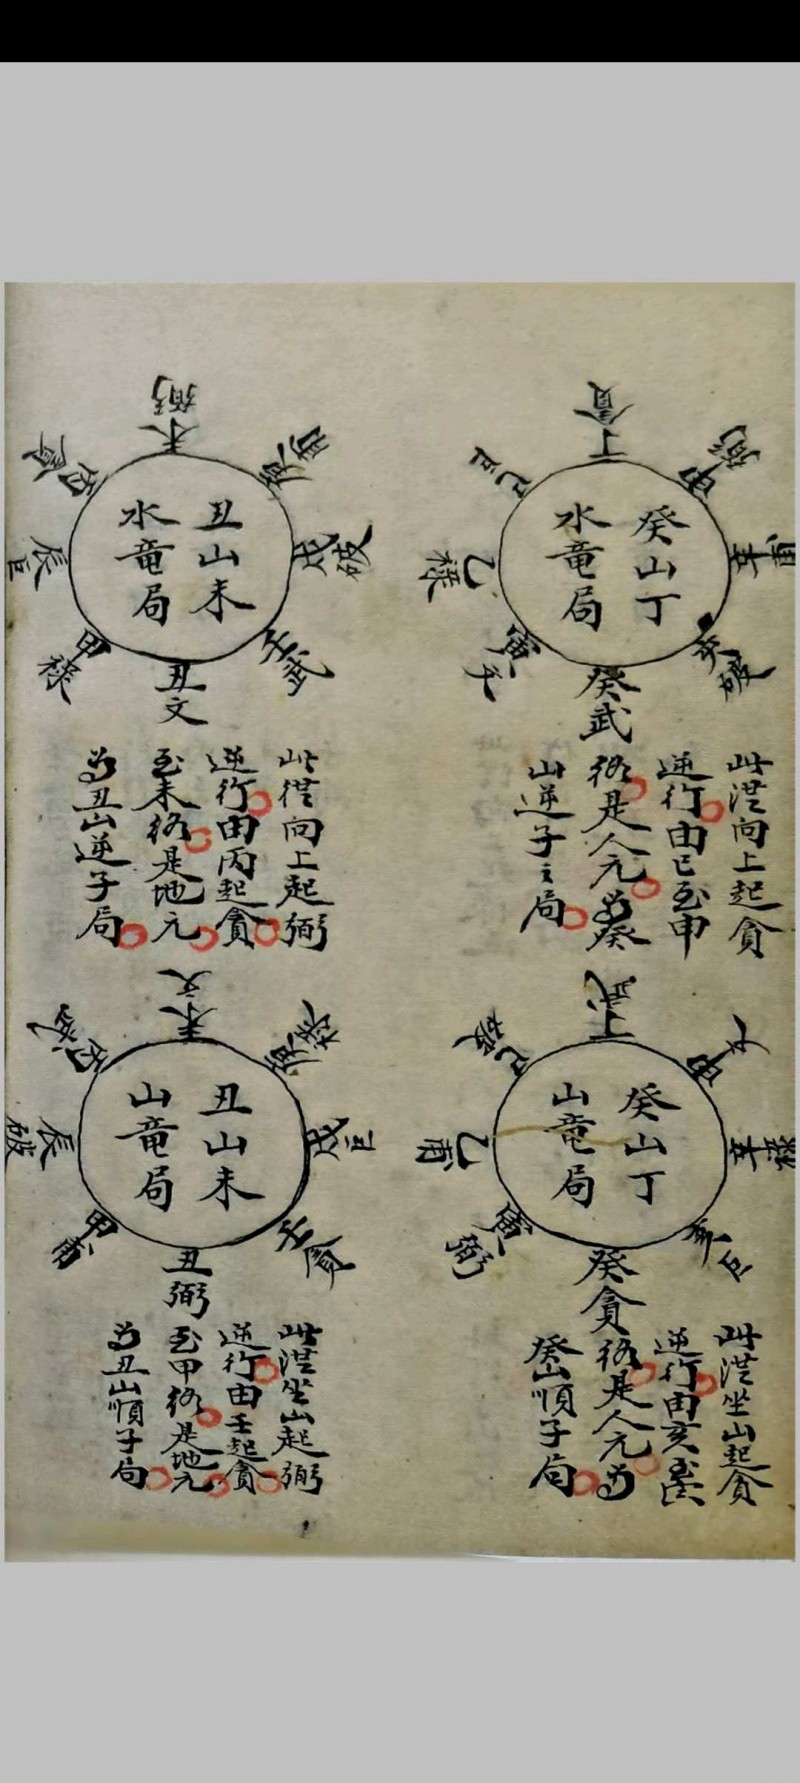 丁貪
申弼
辛甫
亥破
癸武
寅文
乙祿
巳巨
癸山丁
水竜局
此從向上起貪
逆行由巳至申
終是人元為癸
山逆子之局
未弼
庚甫
戌破
壬武
丑文
甲祿
辰巨
丙貪
丑山未
水竜局
此從向上起弼
逆行由丙起貪
至未終是地元
為丑山逆子局
丁武
申文
辛祿
亥巨
癸貪
寅弼
乙甫
巳破
癸山丁
山竜局
此從坐山起貪
逆行由亥至寅
終是人元為
癸山順子局
未文
庚祿
戌巨
壬貪
丑弼
甲甫
辰破
丙武
丑山未
山竜局
此從坐山起弼
逆行由壬起貪
至甲終是地元
為丑山順子局